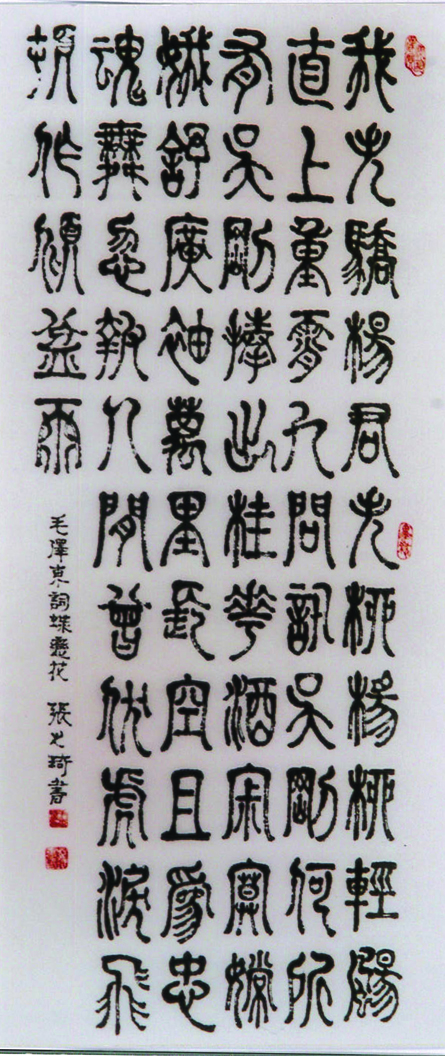 我失驕楊君失柳楊柳輕颺
直上重霄九問訊吳剛何所
有吳剛捧出桂華酒寂寞嫦
娥舒廣袖萬里長空且爲忠
魂舞忽報人間曾伏虎淚飛
頓作傾盆雨
毛澤東詞蝶戀花 張琦書